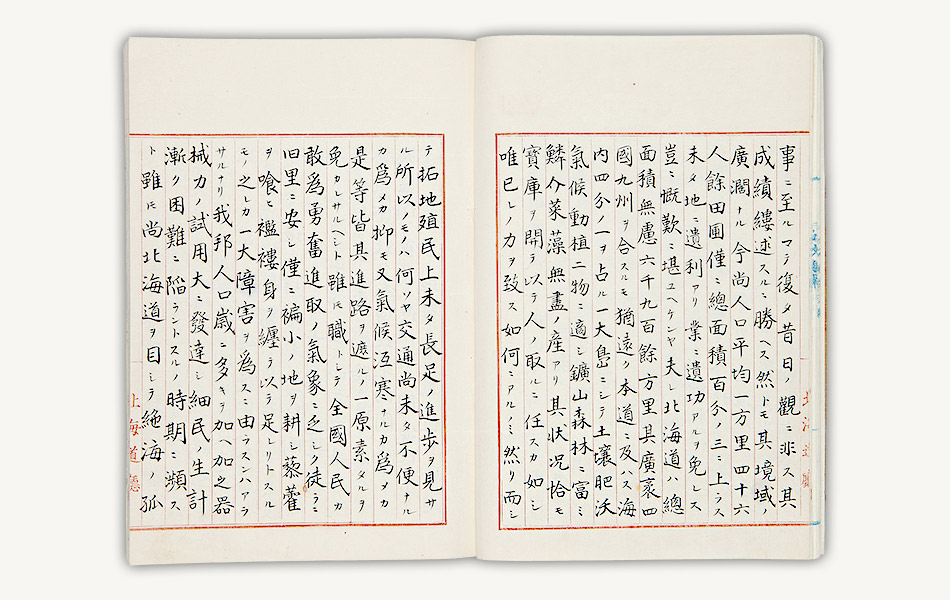 事ニ至ルマテ復タ昔日ノ觀ニ非ス其
成績縷述スルニ勝ヘス然トモ其境域ノ
廣濶ナル今尚人口平均一方里四十六
人餘田圃僅ニ總面積百分ノ三ニ上ラス
未タ地ニ遺利アリ業ニ遺功アルヲ免レス
豈ニ慨歎ニ堪ユヘケンヤ夫レ北海道ハ總
面積無慮六千九百餘方里其廣袤四
國九州ヲ合スルモ猶遠ク本道ニ及ハス海
内四分ノ一ヲ占ル一大島ニシテ土壤肥沃
氣候動植二物ニ適シ鑛山森林ニ富ミ
鱗介菜藻無盡ノ産アリ其状况恰モ
寶庫ヲ開テ以テ人ノ取ルニ任スカ如シ
唯已レノ力ヲ致ス如何ニアルノミ然リ而シ
テ拓地殖民上未タ長足ノ進歩ヲ見サ
ル所以ノモノハ何ソヤ交通尚未タ不便ナル
カ爲メカ抑モ又氣候沍寒ナルカ爲メカ
是等皆其進路ヲ遮ルノ一原素タルヲ
免カレサルヘシト雖モ職トシテ全國人民カ
敢爲勇奮進取ノ氣象ニ乏シク徒ラニ
旧里ニ安シ僅ニ褊小ノ地ヲ耕シ藜藿
ヲ喰ヒ襤褸身ヲ纏テ以テ足レリトスル
モノ之レカ一大障害ヲ爲スニ由ラスンハアラ
サルナリ我邦人口歳ニ多キヲ加ヘ加之器
械力ノ試用大ニ發達シ細民ノ生計
漸ク困難ニ陷ラントスルノ時期ニ瀕ス
ト雖モ尚北海道ヲ目シテ絶海ノ孤
北海道廳
北海道廳